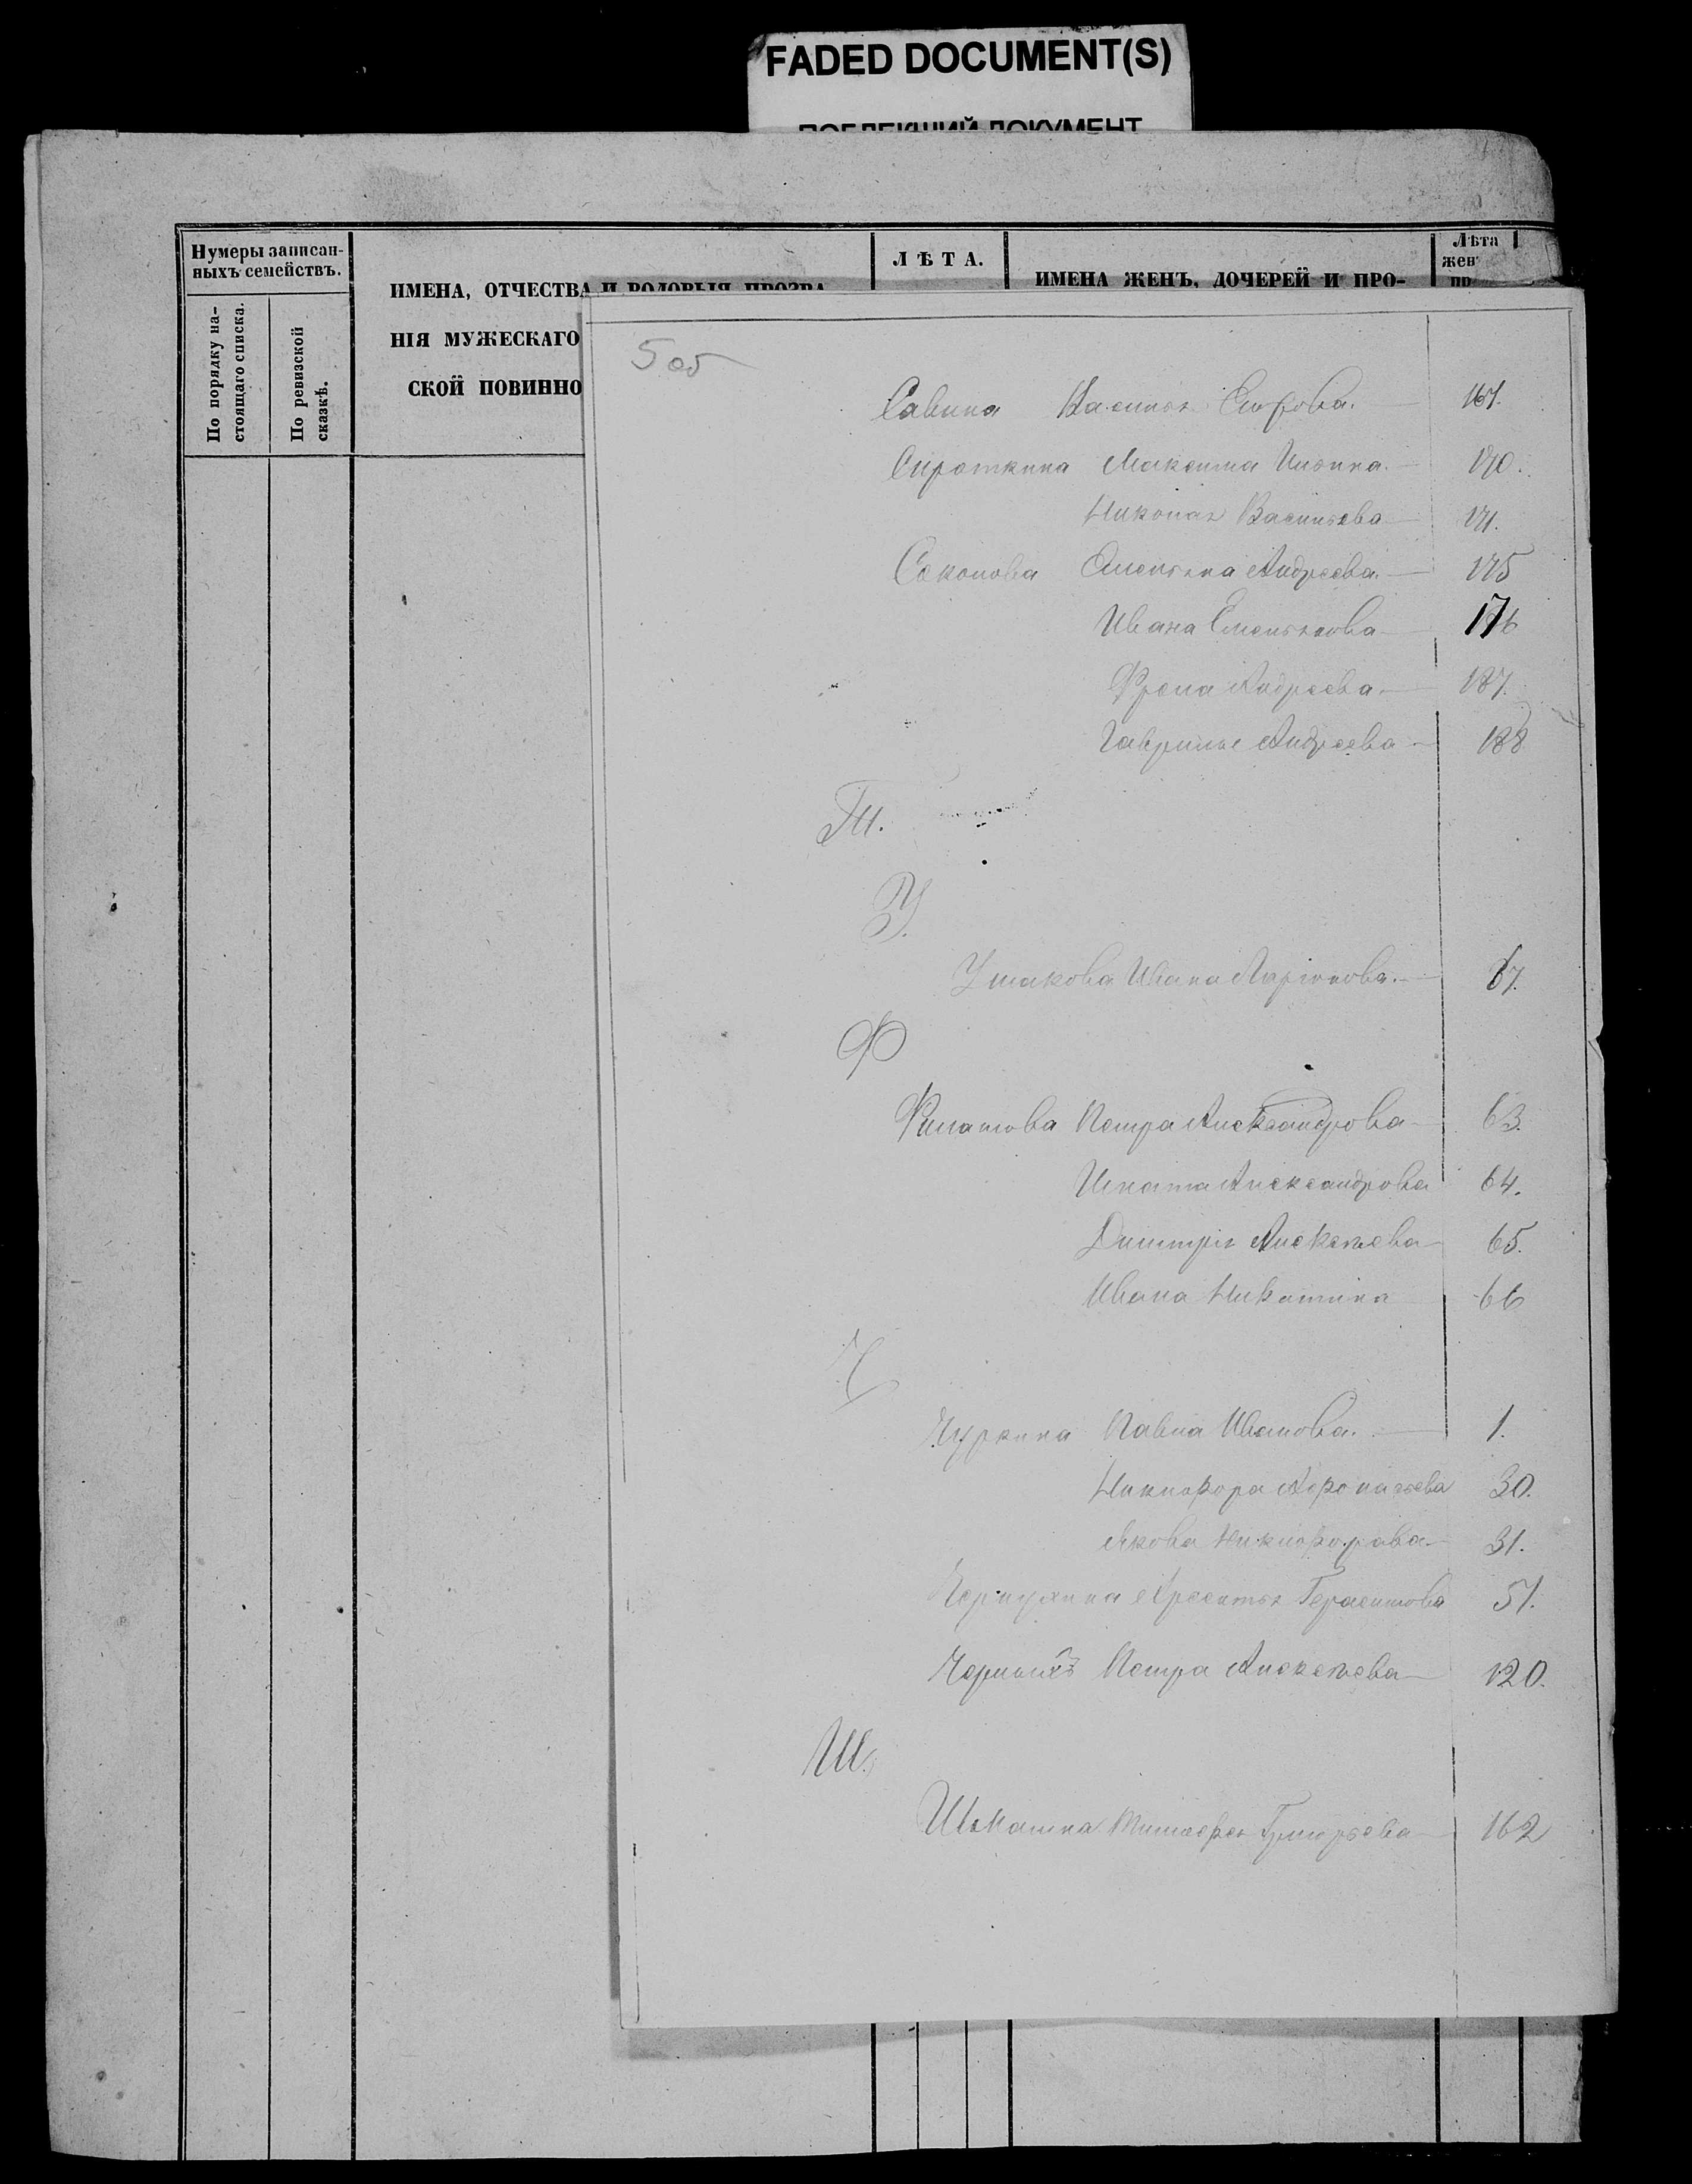 FADED DOCUMENT(S)
ПОБЛЕКШИЙ ДОКУМЕНТ
Нумеры записан-
ныхъ семействъ.
По порядку на-
стоящаго списка.
По ревизской
сказкѣ.
ИМЕНА, ОТЧЕСТВА И РОДОВЫЯ ПРОЗВА
НІЯ МУЖЕСКАГО
СКОЙ ПОВИННО
ЛѢТА.
ИМЕНА ЖЕНЪ, ДОЧЕРЕЙ И ПРО-
Лѣта
жен
пр
5 об
Савина Василья 167.
Сироткина Максима 170.
Николая Васильева 171.
Соколова Емельяна Андреева 175
Ивана Емельянова 176
Фрола Андреева 187.
Гаврилы Андреева 188
Т.
У.
Ушакова Ивана Ларіонова 67.
Ф
Филатова Петра Александрова 63.
Игната Александрова 64.
Дмитрія Алексѣева 65.
Ивана Никитина 66
Ч
Чуркина Павла Иванова. 1.
Никифора 30.
Якова Никифорова 31.
Арсентья Герасимова 51.
Черныхъ Петра Алексѣева 120.
Ш.
Тимофея Григорьева 162